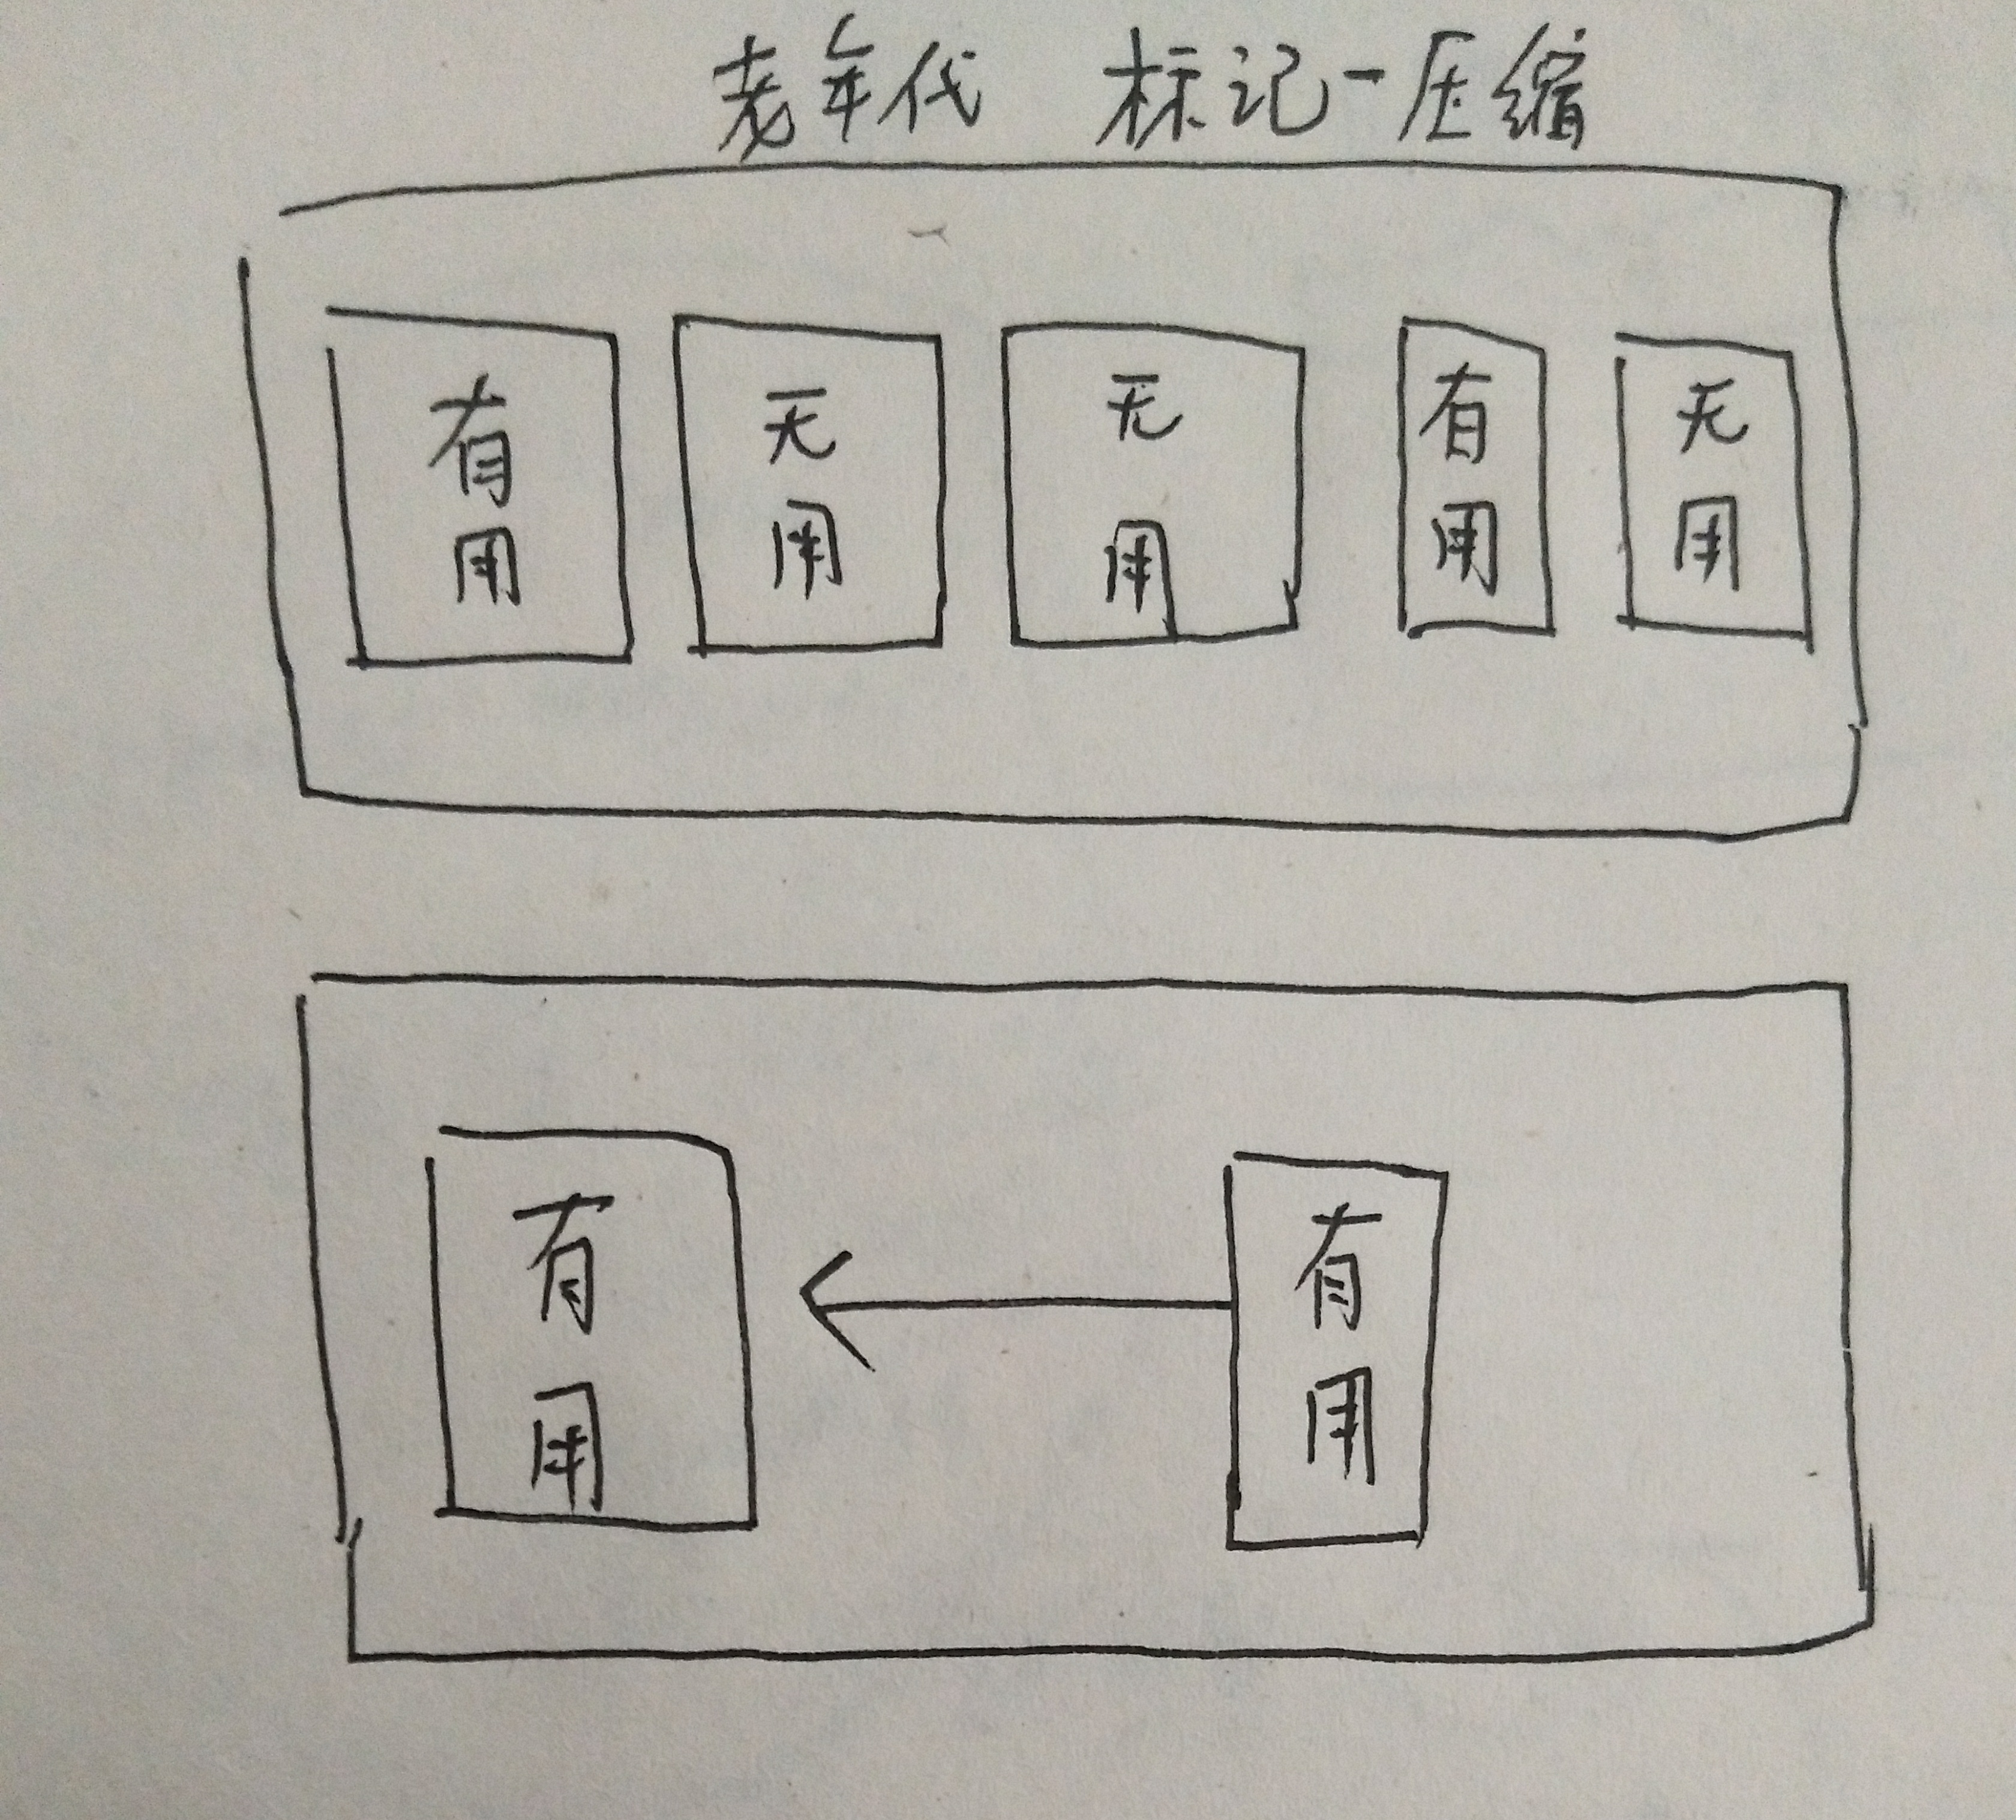 老年代 标记-压缩
有用 无用 无用 有用 无用
有用 有用